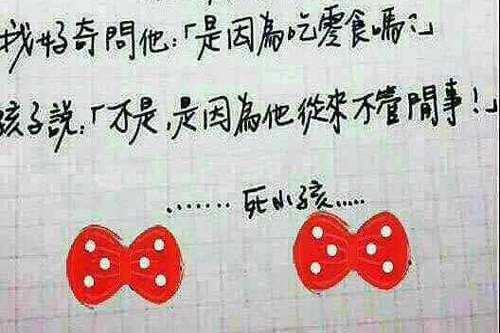 我好奇問他:「是因為吃零食嗎?」
孩子說:「不是,是因為他從來不管閒事!」
.......死小孩.....